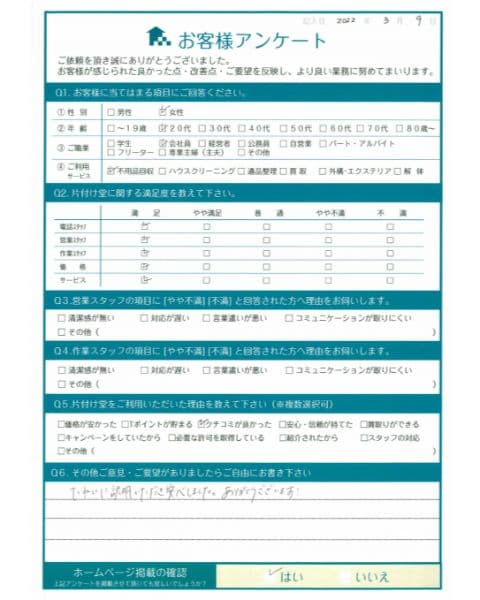 記入日 2022 年 3 月 9 日
お客様アンケート
ご依頼を頂き誠にありがとうございました。
お客様が感じられた良かった点・改善点・ご要望を反映し、より良い業務に努めてまいります。
Q1. お客様に当てはまる項目にご回答ください。
①性 別 □男性 ☑女性
②年 齢 □～19歳 ☑20代 □30代 □40代 □50代 □60代 □70代 □80歳～
③ご職業 □学生 ☑会社員 □経営者 □公務員 □自営業 □パート・アルバイト
□フリーター □専業主婦（主夫） □その他
④ご利用サービス ☑不用品回収 □ハウスクリーニング □遺品整理 □買 取 □外構・エクステリア □解 体
Q2. 片付け堂に関する満足度を教えて下さい。
満 足 やや満足 普 通 やや不満 不 満
電話スタッフ ☑ □ □ □ □
営業スタッフ ☑ □ □ □ □
作業スタッフ ☑ □ □ □ □
価 格 ☑ □ □ □ □
サービス ☑ □ □ □ □
Q3.営業スタッフの項目に [やや不満] [不満] と回答された方へ理由をお伺いします。
□清潔感が無い □対応が遅い □言葉遣いが悪い □コミュニケーションが取りにくい
□その他（ ）
Q4.作業スタッフの項目に [やや不満] [不満] と回答された方へ理由をお伺いします。
□清潔感が無い □対応が遅い □言葉遣いが悪い □コミュニケーションが取りにくい
□その他（ ）
Q5.片付け堂をご利用いただいた理由を教えて下さい（※複数選択可）
□価格が安かった □Tポイントが貯まる ☑クチコミが良かった □安心・信頼が持てた □買取りができる
□キャンペーンをしていたから □必要な許可を取得している □紹介されたから □スタッフの対応
□その他（ ）
Q6. その他ご意見・ご要望がありましたらご自由にお書き下さい
説明いただき ました。ありがとうございます!
ホームページ掲載の確認
上記アンケートを掲載させて頂いても宜しいでしょうか？
☑はい □いいえ